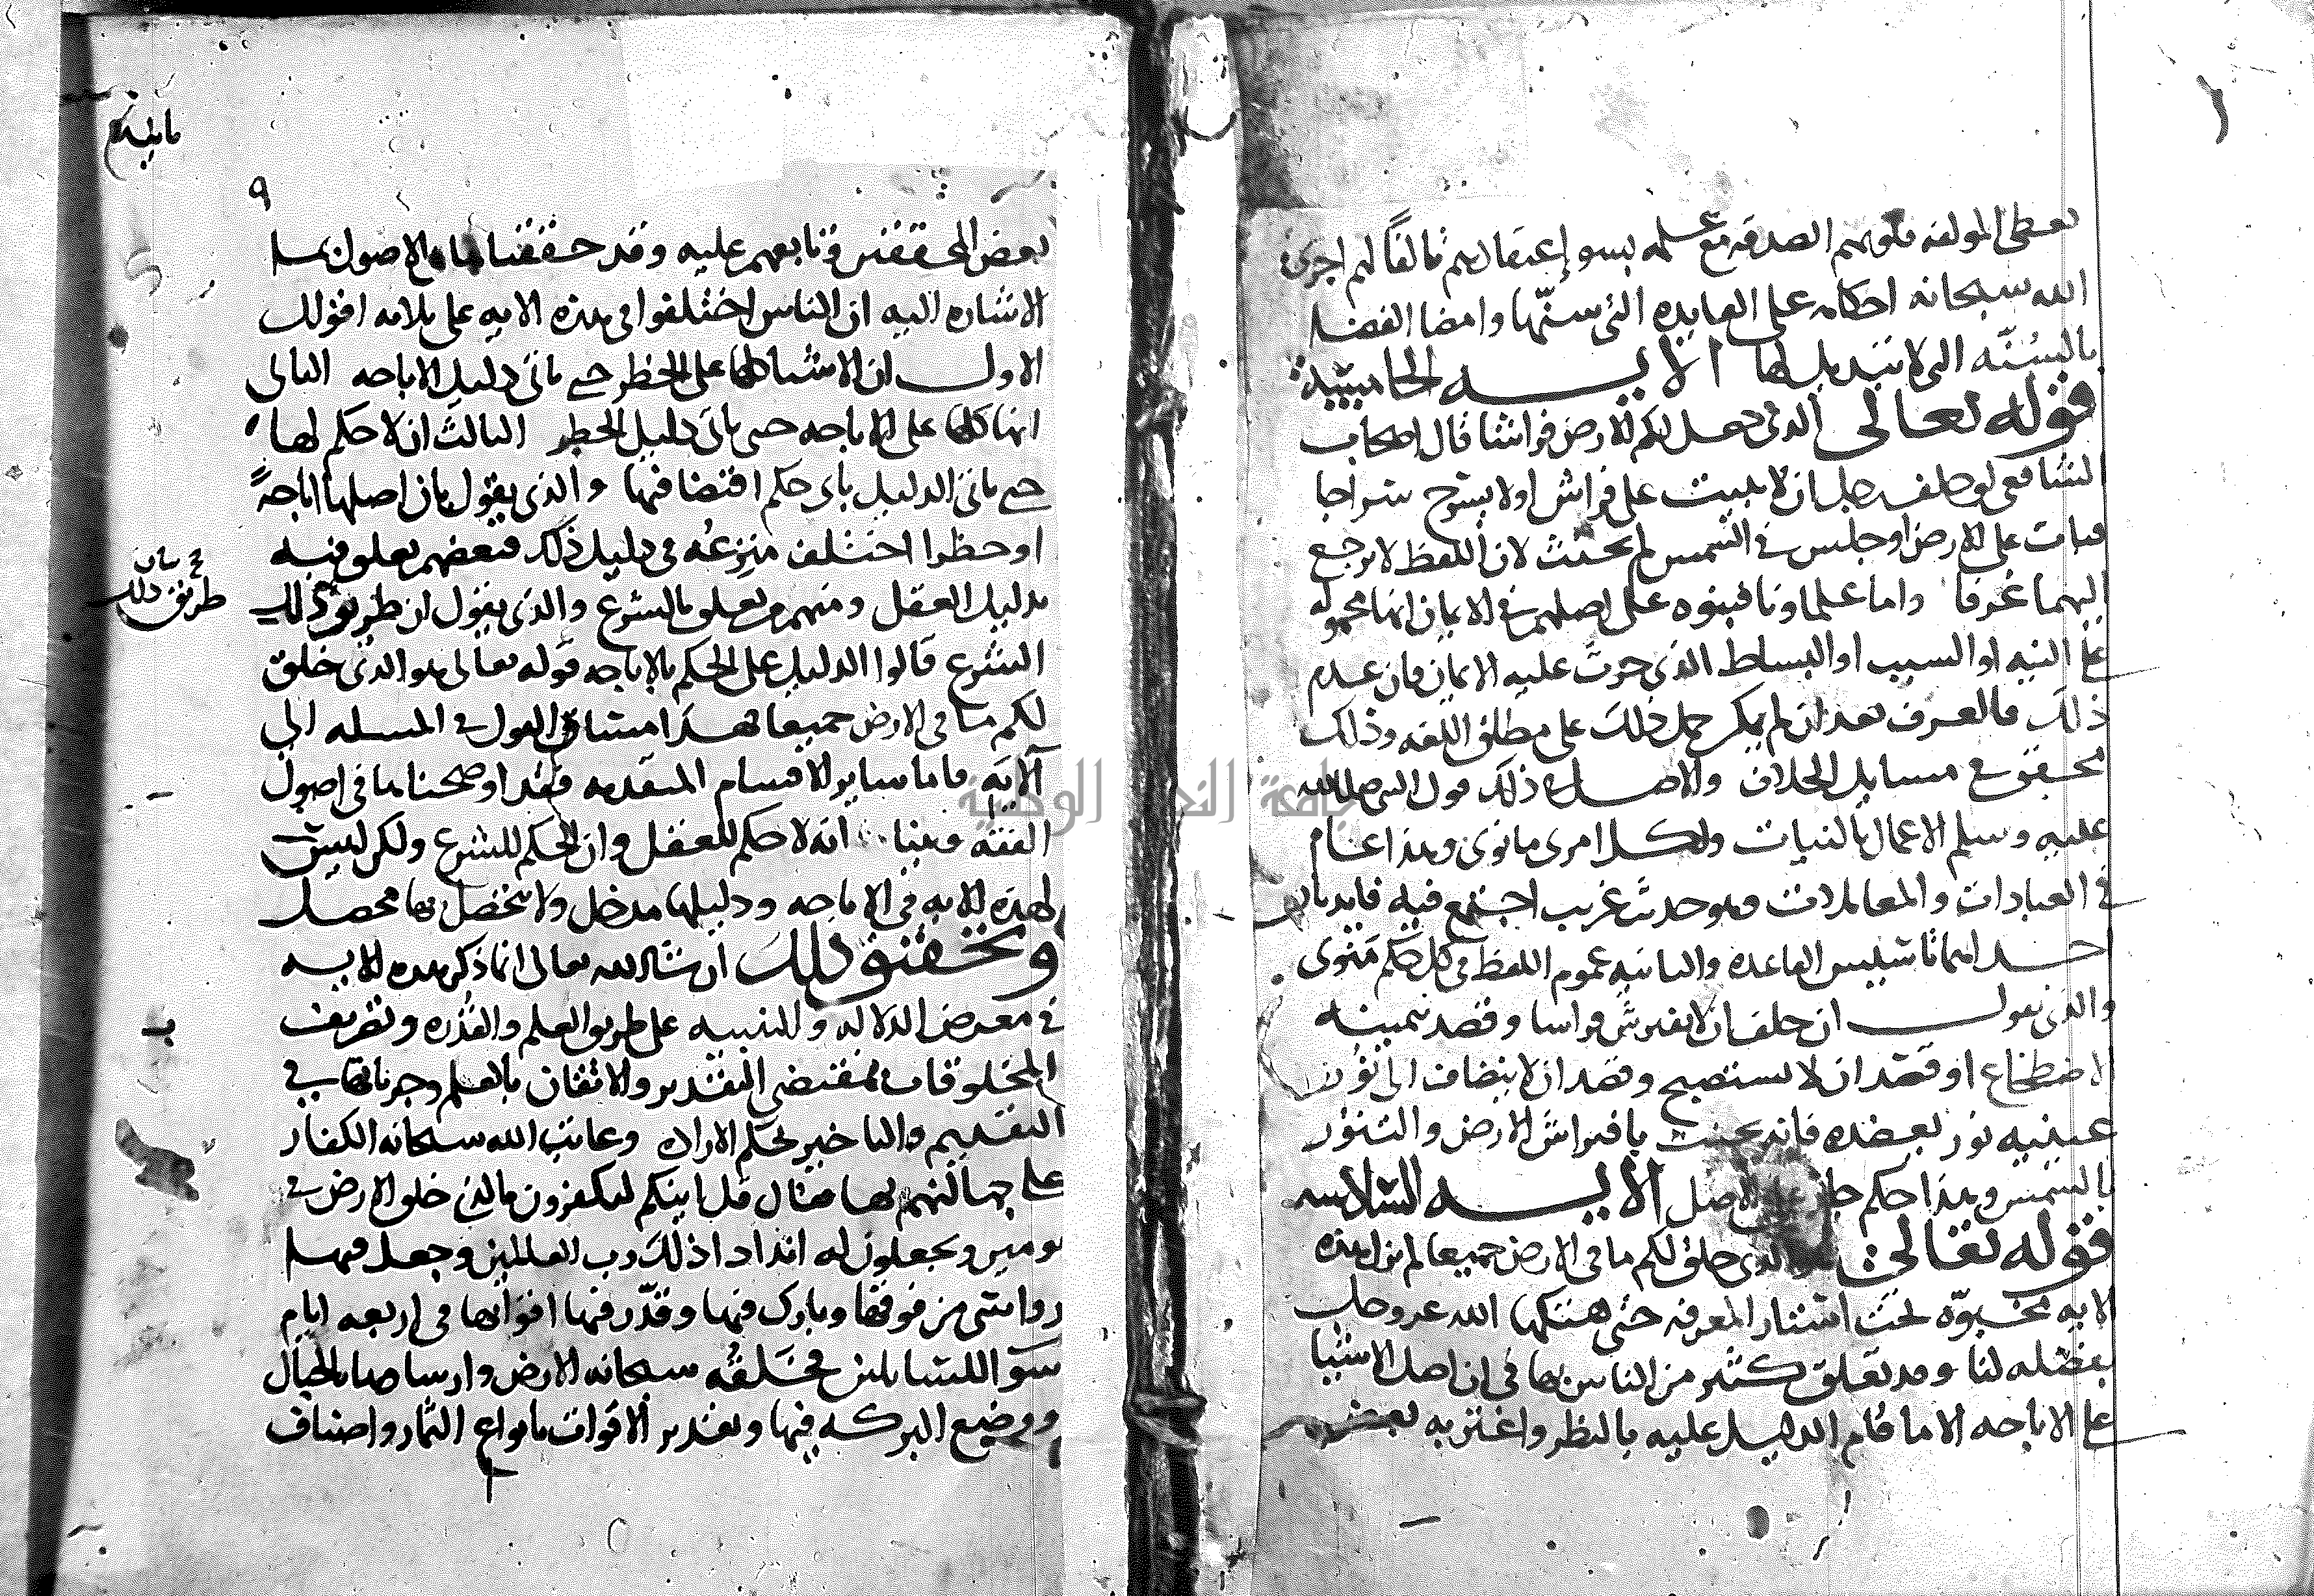 يعطي المولفه قلوبهم الصدقه مع علمه بسو إعتقادهم تالفًا لهم اجرى
الله سبحانه احكامه على الفايده التي سنّها وامضا القضا
بالسُنّه التي لا تبديل لها الايــه الخامسة
قوله تعالى الذي جعل لكم الارض فراشا قال اصحاب
الشافعي لو حلف رجل ان لا يبيت على فراش او لا يستسرج سراجا
فبات على الارض او جلس في الشمس لم يحنث لان اللفظ لا يرجع
اليهما عُرفا واما علماونا فبنوه على اصلهم في الايمان انها محموله
على النيه او السبب او البساط الذي جرت عليه الايمان فان عدم
ذلك فالعرف بعد ان لم يكن حمل ذلك على مطلق اللغه وذلك
محقق في مسايل الخلاف والاصل في ذلك قول النبي صلى الله
عليه وسلم الاعمال بالنيات ولكل امرى ما نوى وهذا عام
في العبادات والمعاملات وهو حديث غريب اجتمع فيه فايدتان
احداهما تاسيس القاعده والثانيه عموم اللفظ في كل حكم مَنْوى
والذي نقول ان حلف ان لا يفترش فراسا وقصد بيمينه
الاضطجاع او قصد ان لا يستصبح وقصد ان لا ينضاف الى نُور
عينيه نور يعضده فانه يحنث بافتراش الارض والتنوُّر
بالشمس وهذا حكم جار على الاصل الايــه السادسه
قوله تعالى هو الذي خلق لكم ما في الارض جميعا لم تزل هذه
الايه مخبوّه تحت استتار المعرفه حتى هتكها الله عز وجل
بفضله لنا وقد تعلق كثير من الناس بها في ان اصل الاشيا
على الاباحه الا ما قام الدليل عليه بالحظر واغتر به بعض
ما يليه
٩
بعض المحققين وتابعهم عليه وقد حققناها في الاصول بما
الاشاره اليه ان الناس اختلفوا في هذه الايه على ثلاثه اقوال
الاول ان الاشيا كلها على الحظر حتى ياتي دليل الاباحه الثاني
انها كلها على الاباحه حتى ياتي دليل الحظر الثالث ان لا حكم لها
حتى ياتي الدليل باي حكم اقتضا فيها والذي يقول بان اصلها اباحهً
او حظرا اختلف منزعُه في دليل ذلك فبعضهم تعلق فيه
بدليل العقل ومنهم من تعلق بالشرع والذي يقول ان طريق ذلك
طريق ذلك
الشرع قالوا الدليل على الحكم بالاباحه قوله تعالى هو الذي خلق
لكم ما في الارض جميعا فهذا مساق القول في المسله الى
الآيه فاما ساير الاقسام المتقدمه فقد اوضحناها في اصول
الفقه وبينا انه لا حكم للعقل وان الحكم للشرع ولكن ليس
لهذه الايه في الاباحه ودليلها مدخل ولا يتحصل بها محصل
وتحقيق ذلك ان شا الله تعالى انما ذكر هذه الايه
في معرض الدلاله والتنبيه على طريق العلم والقُدْره وتصريف
المخلوقات بمقتضى التقدير والاتقان بالعلم وجريانها في
التقديم والتاخير بحكم الاراده وعاتب الله سبحانه الكفار
على جهالتهم بها فقال قل اينكم لتكفرون بالذي خلق الارض في
يومين وتجعلون له اندادا ذلك رب العالمين وجعل فيها
رواسي من فوقها وبارك فيها وقدّر فيها اقواتها في اربعه ايام
سوا للسايلين فخَلقُه سبحانه الارض وارساوها بالجبال
ووضع البركه فيها وتقدير الاقوات بانواع الثمار واصناف